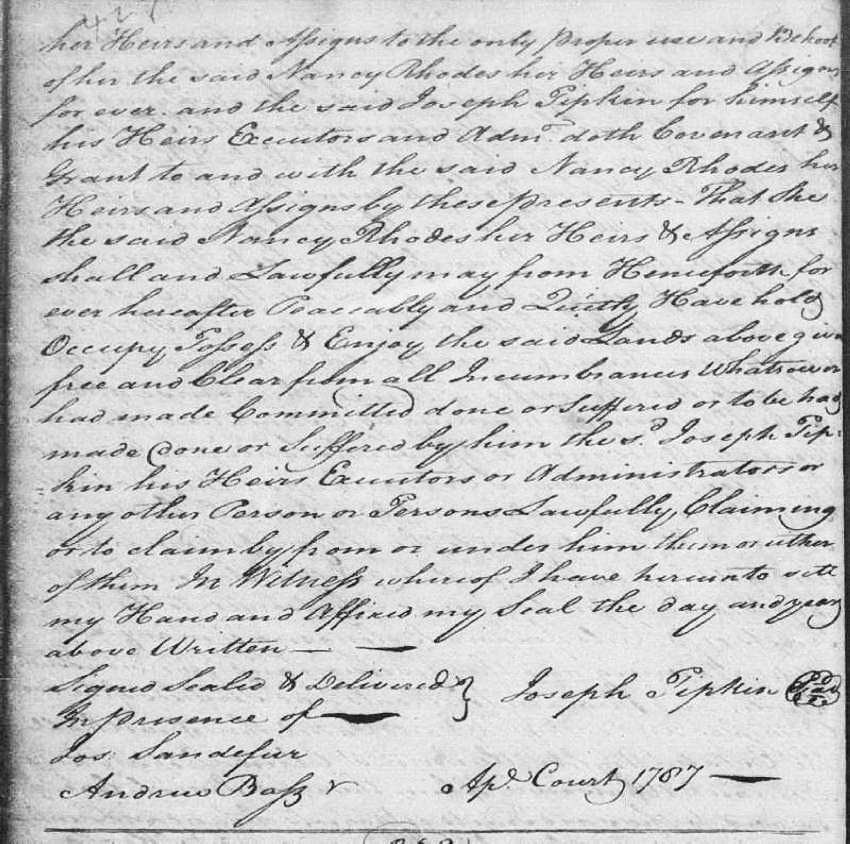 427
her Heirs and Assigns to the only proper use and Behoof
of her the said Nancy Rhodes her Heirs and Assigns
for ever. and the said Joseph Pipkin for himself
his Heirs Executors and Admrs doth Covenant &
Grant to and with the said Nancy Rhodes her
Heirs and Assigns by these presents - That She
the said Nancy Rhodes her Heirs & Assigns
shall and Lawfully may from Henceforth for
ever hereafter Peaceably and Quietly Have hold
Occupy Possess & Enjoy the said Lands above given
free and Clear from all Incumbrances Whatsoever
had made Committed done or Suffered or to be had
made done or Suffered by him the sd. Joseph Pip-
kin his Heirs Executors or Administrators or
any other Person or Persons Lawfully Claiming
or to claim by from or under him them or either
of them In Witness whereof I have hereunto sett
my Hand and Affixed my Seal the day and year
above Written —
Signed Sealed & Delivered } Joseph Pipkin Seal
In presence of —
Jos Sandefur
Andrew Bass Apl. Court 1787 —